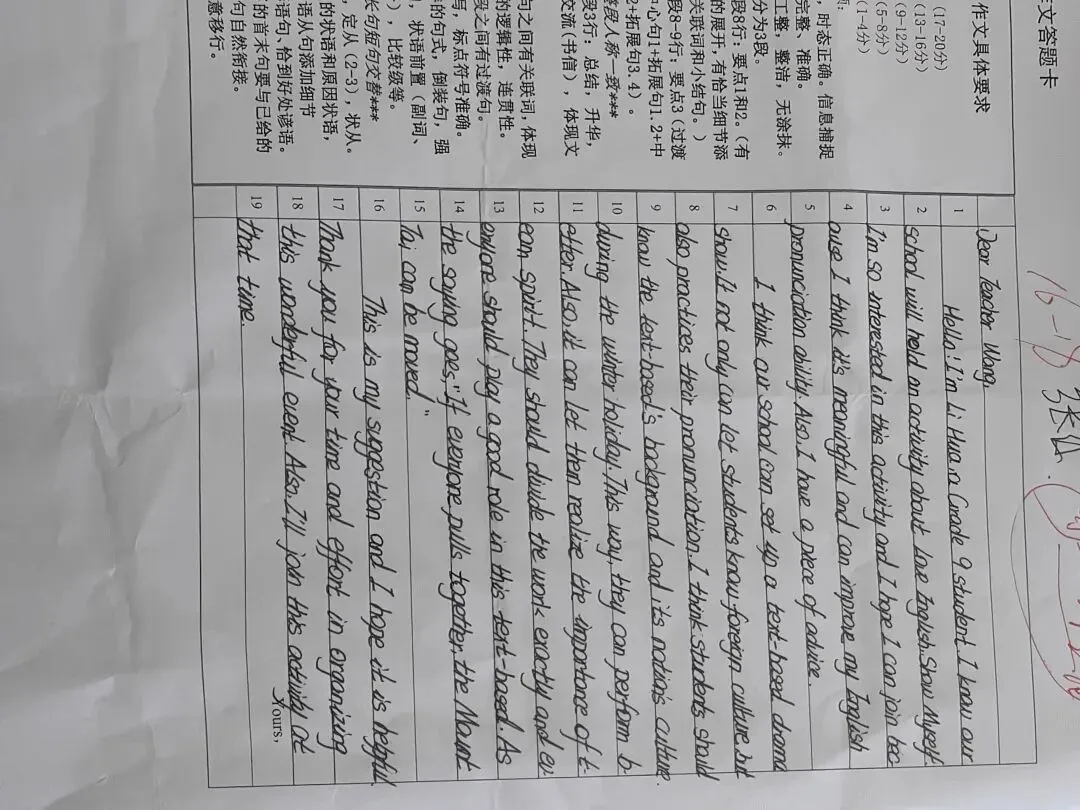 作文答题卡
作文具体要求
(17-20分)
(13-16分)
(9-12分)
(5-8分)
(1-4分)
,时态正确。信息捕捉
完整,准确。
工整,整洁,无涂抹。
分为3段。
段8行:要点1和2。(有
的展开,有恰当细节添
关联词和小结句。)
段8-9行:要点3(过渡
中心句1+拓展句1.2+中
2+拓展句3.4)。
段人称一致***
段3行:总结,升华,
交流(书信),体现文
句之间有关联词,体现
的逻辑性,连贯性。
段之间有过渡句。
写,标点符号准确。
的句式,倒装句,强
,状语前置(副词、
),比较级等。
长句短句交替***
,定从(2-3),状从。
的状语和原因状语,
语从句添加细节
语句,恰到好处谚语。
的首末句要与已给的
句自然衔接。
意移行。
16-18
Dear Teacher Wang,
1 Hello! I'm Li Hua, a Grade 9 student. I know our
2 school will held an activity about Love English, Show Myself
3 I'm so interested in this activity and I hope I can join bec
4 ause I think it's meaningful and can improve my English
5 pronunciation ability. Also, I have a piece of advice.
6 I think our school can set up a text-based drama
7 show. It not only can let students know foreign culture, but
8 also practices their pronunciation. I think students should
9 know the text-based's background and its nation's culture
10 during the winter holiday. This way, they can perform b-
11 etter. Also, it can let them realize the importance of t-
12 eam spirit. They should divide the work exactly and ev
13 eryone should play a good role in this text-based. As
14 the saying goes, "If everyone pulls together, the Mount
15 Tai can be moved."
16 This is my suggestion and I hope it is helpful.
17 Thank you for your time and effort in organizing
18 this wonderful event. Also, I'll join this activity at
19 that time.
Yours,